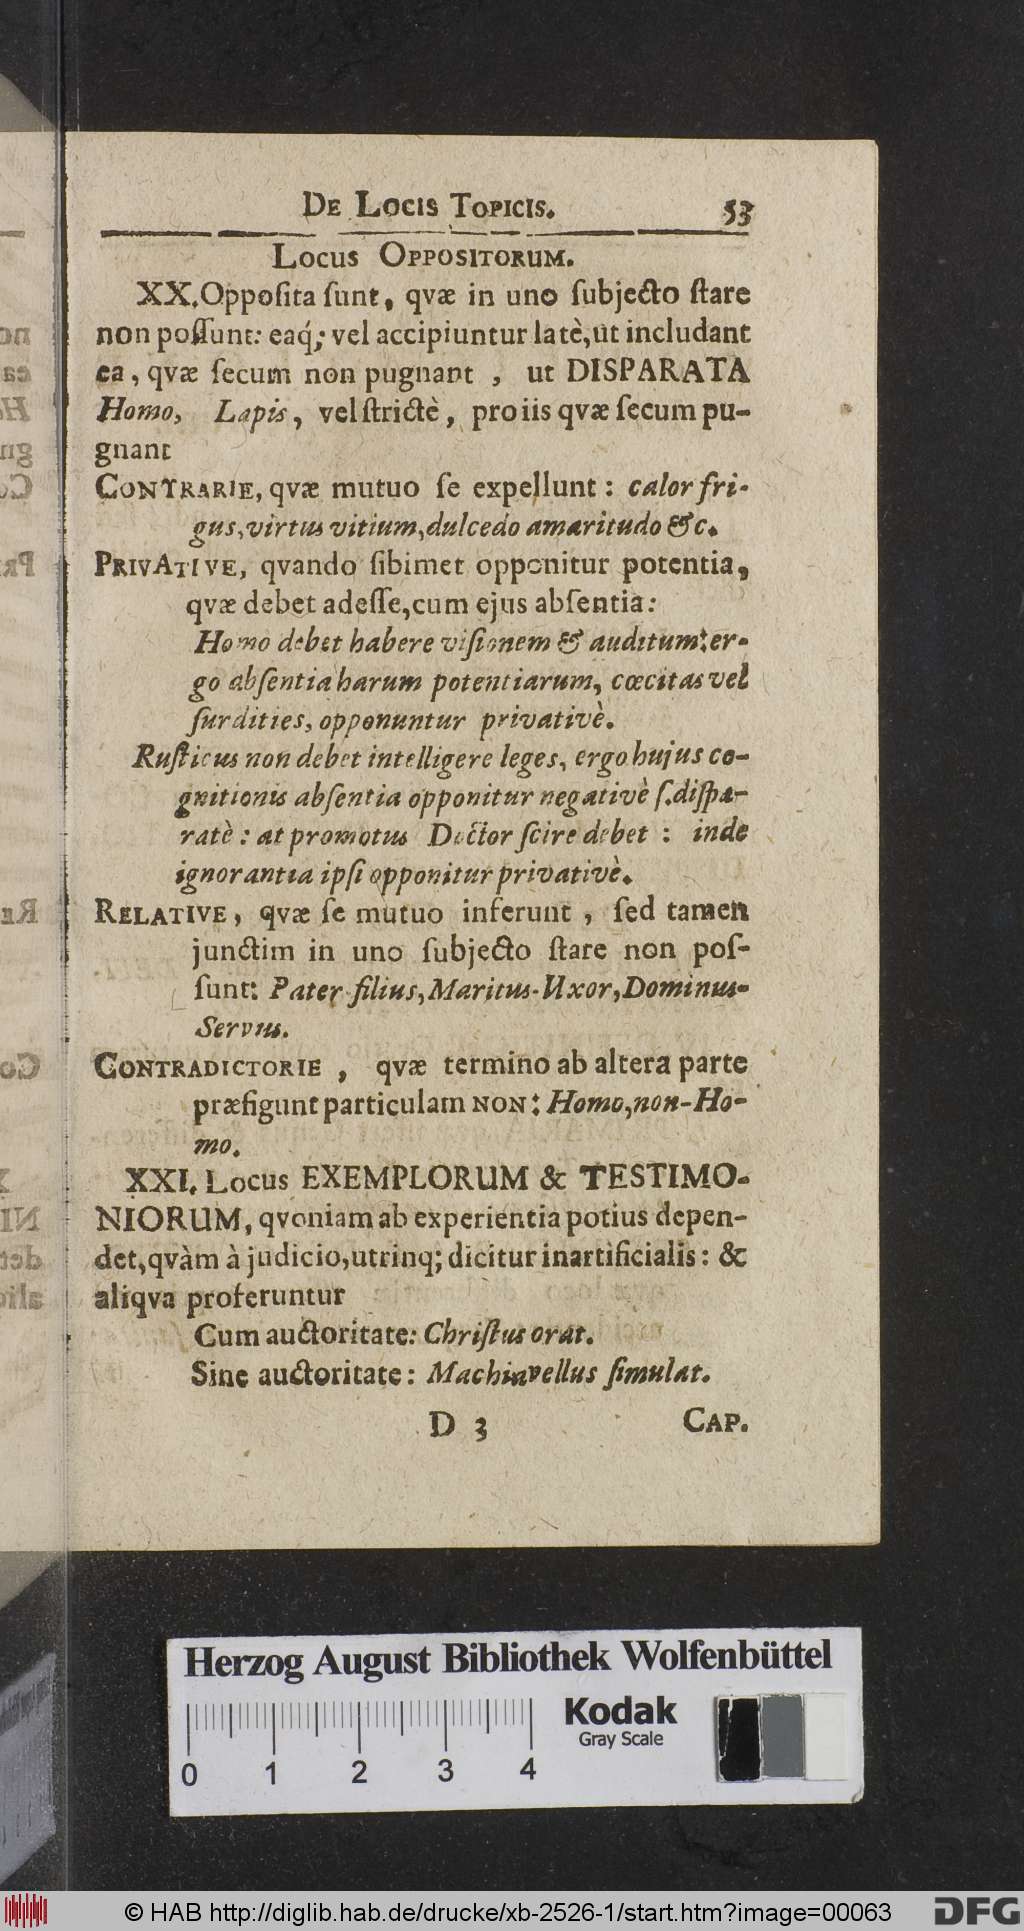 De Locis Topicis. 53
Locus Oppositorum.
XX. Oppoſita ſunt, qvæ in uno ſubjecto ſtare
non poſſunt: eaq́; vel accipiuntur latè, ut includant
ea, qvæ ſecum non pugnant, ut DISPARATA
Homo, Lapis, vel ſtrictè, pro iis qvæ ſecum pu-
gnant
Contrarie, qvæ mutuo ſe expellunt: calor fri-
gus, virtus vitium, dulcedo amaritudo &c.
Privative, qvando ſibimet opponitur potentia,
qvæ debet adeſſe, cum ejus abſentia:
Homo debet habere viſionem & auditum: er-
go abſentia harum potentiarum, cœcitas vel
ſurdities, opponuntur privativè.
Ruſticus non debet intelligere leges, ergo hujus co-
gnitionis abſentia opponitur negativè ſ. diſpa-
ratè: at promotus Doctor ſcire debet: inde
ignorantia ipſi opponitur privativè.
Relative, qvæ ſe mutuo inferunt, ſed tamen
junctim in uno ſubjecto ſtare non poſ-
ſunt: Pater-filius, Maritus-Uxor, Dominus-
Servus.
Contradictorie, qvæ termino ab altera parte
præfigunt particulam non: Homo, non-Ho-
mo.
XXI. Locus EXEMPLORUM & TESTIMO-
NIORUM, qvoniam ab experientia potius depen-
det, qvàm à judicio, utrinq; dicitur inartificialis: &
aliqva proferuntur
Cum auctoritate: Chriſtus orat.
Sine auctoritate: Machiavellus ſimulat.
D 3 Cap.
Herzog August Bibliothek Wolfenbüttel
Kodak
Gray Scale
0 1 2 3 4
© HAB http://diglib.hab.de/drucke/xb-2526-1/start.htm?image=00063
DFG